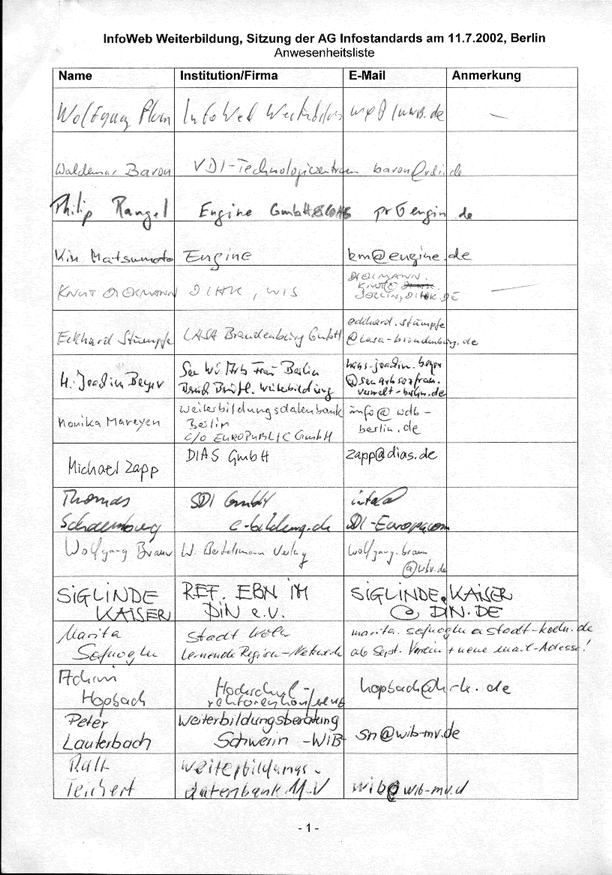 InfoWeb Weiterbildung, Sitzung der AG Infostandards am 11.7.2002, Berlin
Anwesenheitsliste
Name Institution/Firma E-Mail Anmerkung
Wolfgang Plum InfoWeb Weiterbildung —
Waldemar Baron VDI-Technologiezentrum baron@vdi.de
Philip Rangel Engine GmbH pr@engine.de
Kim Matsumoto Engine km@engine.de
DIECKMANN.
KNUT DIECKMANN DIHK, WIS —
BERLIN.DIHK.DE
Eckhard Stümpfe LASA Brandenburg GmbH eckhard.stümpfe
@lasa-brandenburg.de
H.-Joachim Beyer Sen Wi Arb Frau Berlin hans-joachim.beyer
Weiterbildung @senarbsozfrau.
verwalt-berlin.de
Monika Mareyen Weiterbildungsdatenbank info@wdb-
Berlin berlin.de
C/O EUROPUBLIC GmbH
Michael Zapp DIAS GmbH zapp@dias.de
Thomas SDI GmbH
e-bildung.de
Wolfgang Braun W. Bertelsmann Verlag wolfgang.braun
@wbv.de
SIGLINDE REF. EBN IM SIGLINDE.KAISER
KAISER DIN e.V. @ DIN.DE
Marita Stadt Köln
Lernende Region-Netzwerk ab Sept. Verein + neue mail-Adresse!
Achim Hochschul- hopbach@hrk.de
Hopbach rektorenkonferenz
Peter Weiterbildungsberatung sn@wib-mv.de
Lauterbach Schwerin - WIB
Ralf Weiterbildungs-
Teichert datenbank M-V wib@wib-mv.d
- 1 -